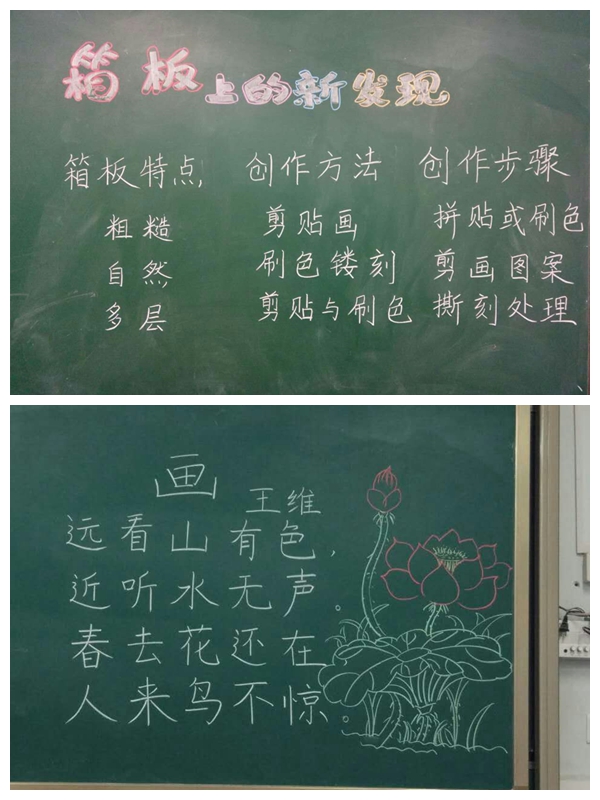 箱板上的新发现
箱板特点, 创作方法 创作步骤
粗糙 剪贴画 拼贴或刷色
自然 刷色镂刻 剪画图案
多层 剪贴与刷色 撕刻处理
画
王维
远看山有色,
近听水无声。
春去花还在
人来鸟不惊。